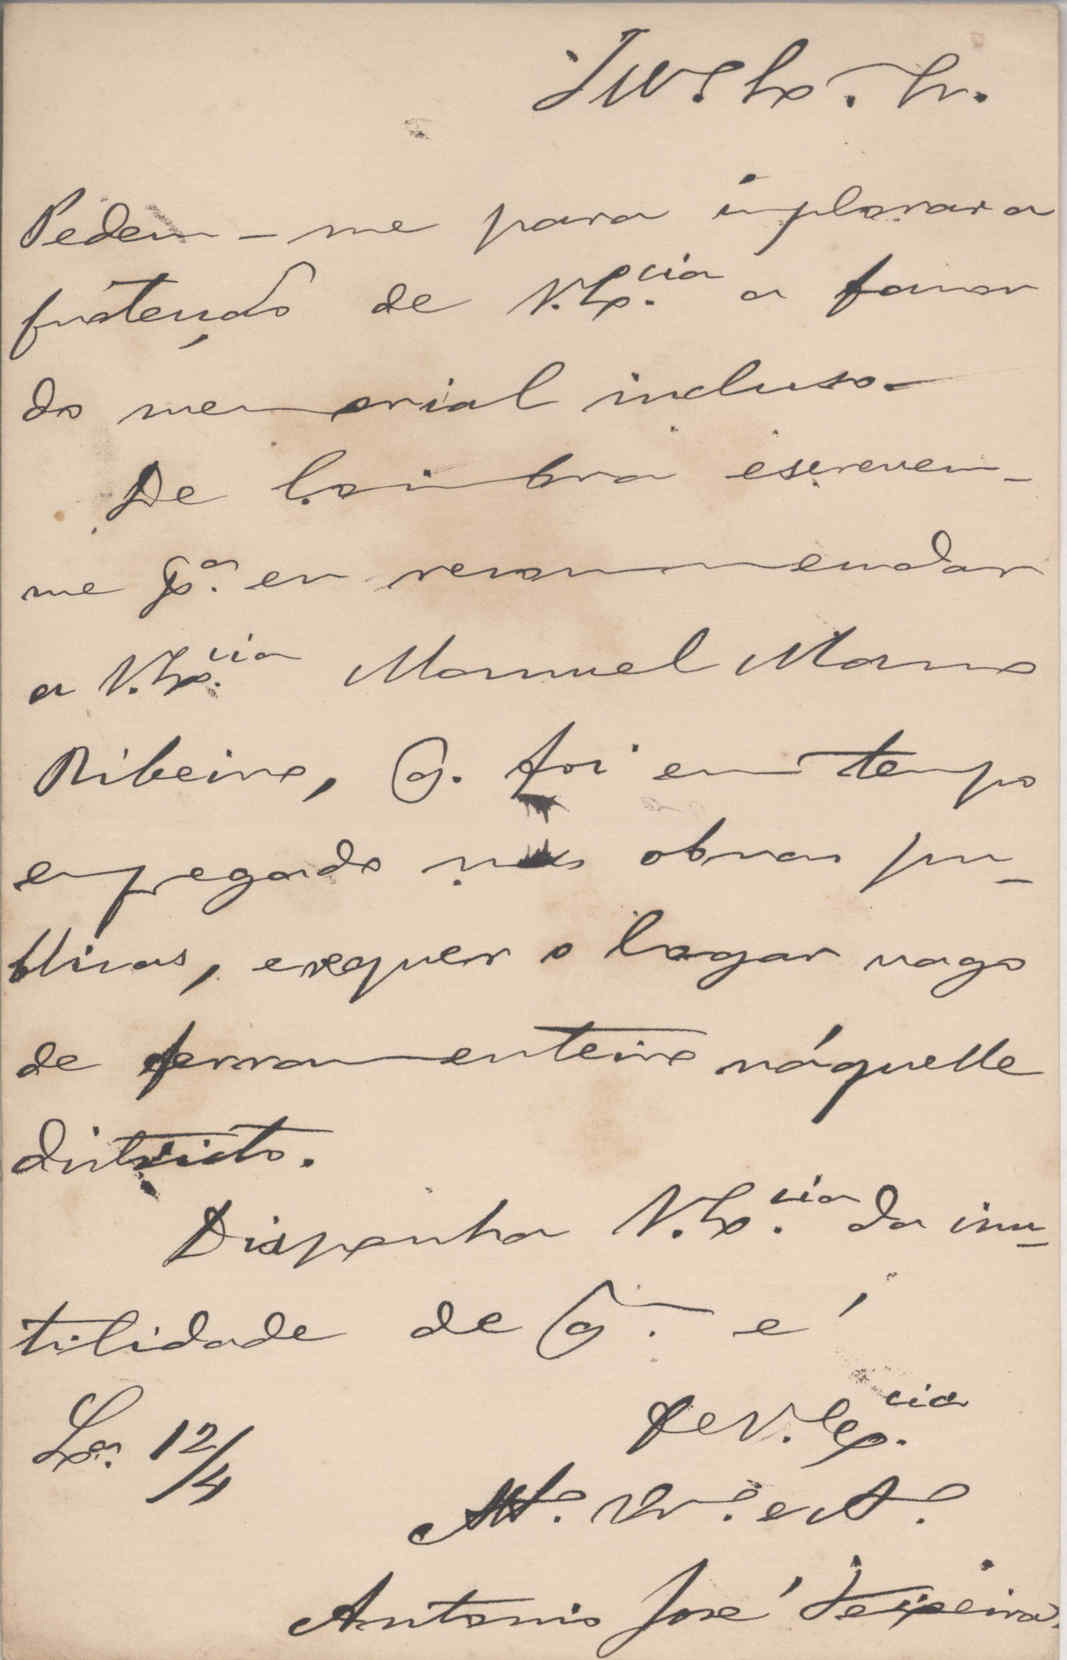 Pedem-me para implorar a
protecção de V. Ex.cia a favor
do memorial incluso.
De Coimbra escrevem-
me p.a eu recommendar
a V. Ex.cia Manuel Maria
Ribeiro, q. foi em tempo
empregado nas obras pu-
blicas, e requer o logar vago
de ferramenteiro n'aquelle
districto.
Disponha V. Ex.cia da inu-
tilidade de q.m é
De V. Ex.cia
Lx.a 12/4
Antonio José Teixeira.